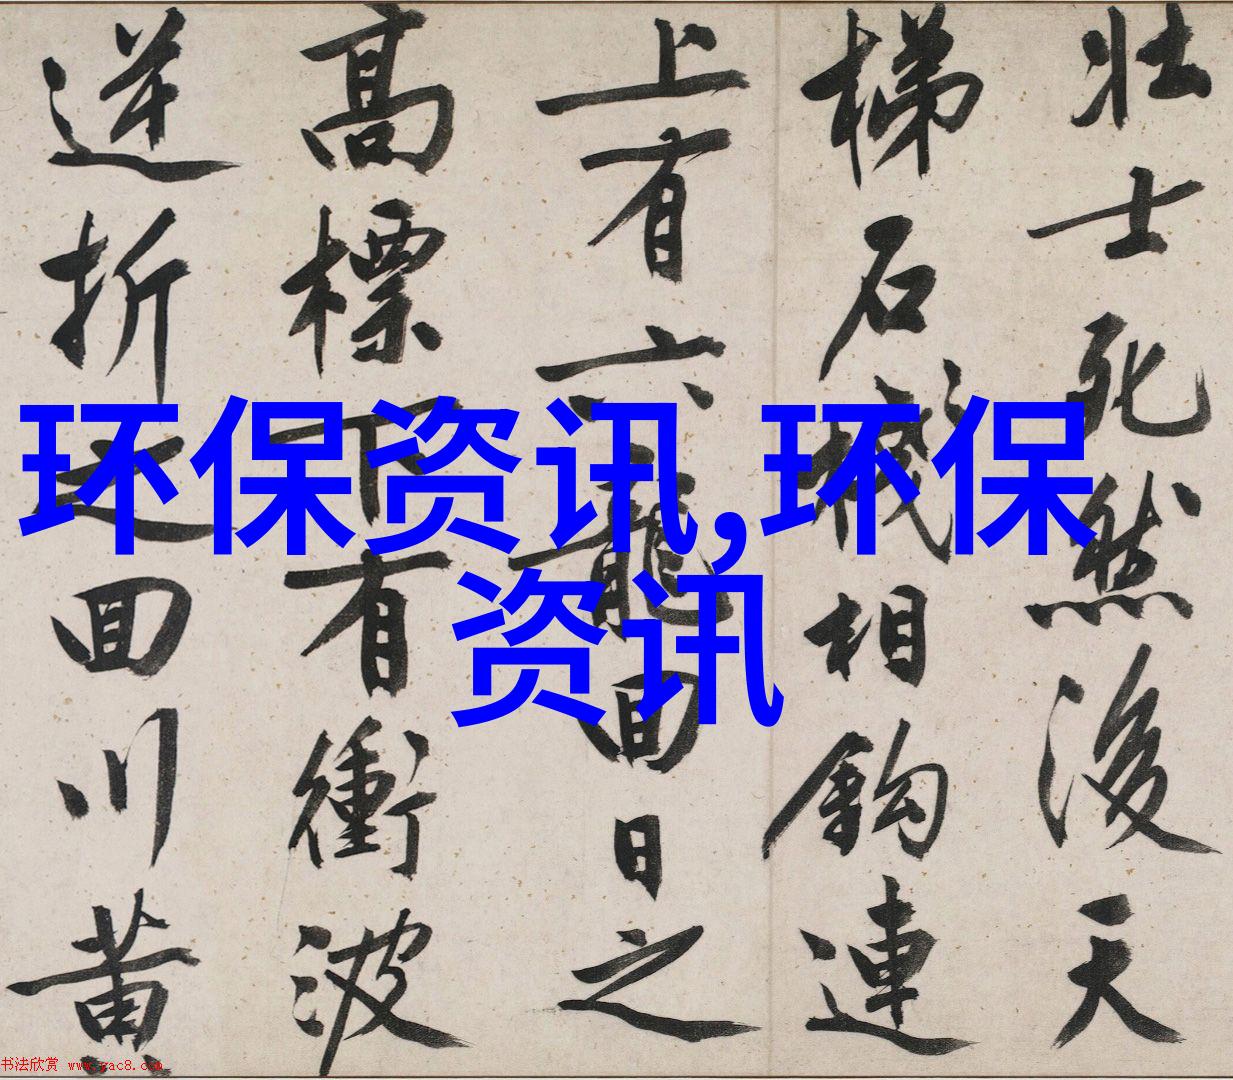 壮士死然後天
梯石棧相鈎連
上有六龍回日之
高標下有衝波
逆折之回川黄
环保资讯,环保
资讯
书法欣赏 www.yac8.com